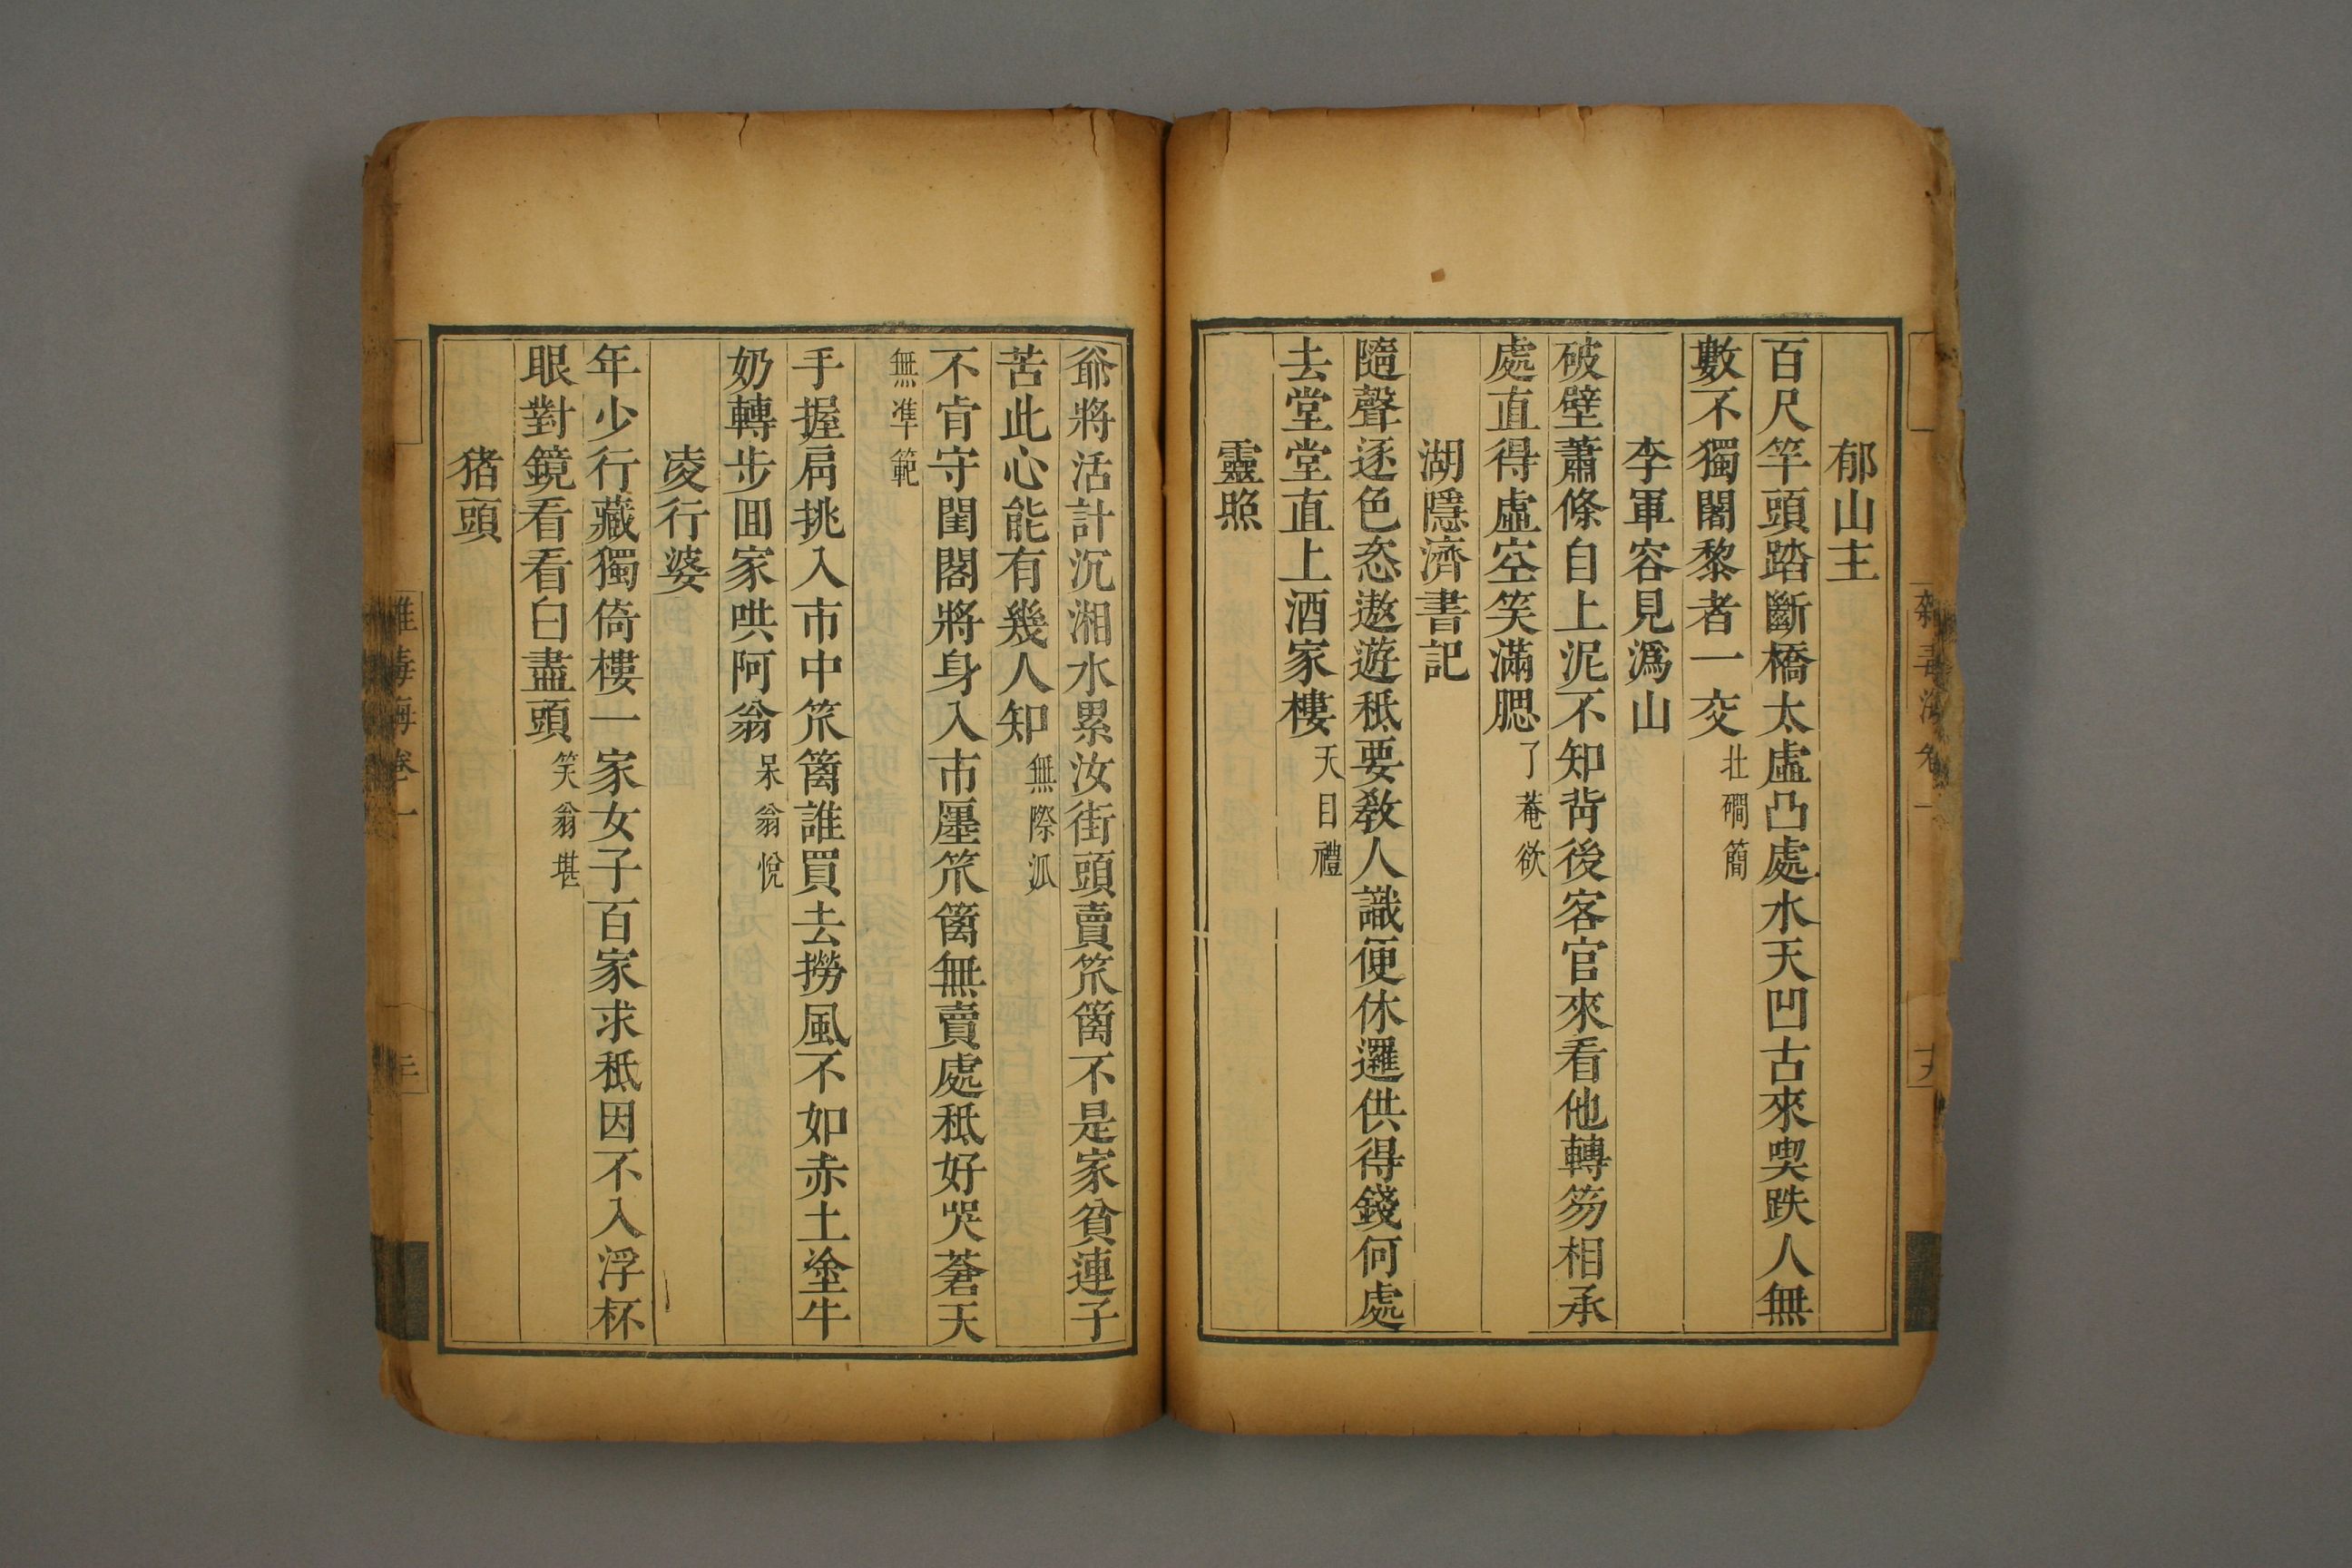 郁山主
百尺竿頭踏斷橋太虛凸處水天凹古來喫跌人無
數不獨闍黎者一交北磵簡
李軍容見潙山
破壁蕭條自上泥不知背後客官來看他轉笏相承
處直得虛空笑滿腮了菴欲
湖隱濟書記
隨聲逐色恣遨遊秪要教人識便休邏供得錢何處
去堂堂直上酒家樓天目禮
靈照
爺將活計沉湘水累汝街頭賣笊篱不是家貧連子
苦此心能有幾人知無際派
不肯守閨閣將身入市廛笊篱無賣處秪好哭蒼天
無準範
手握肩挑入市中笊篱誰買去撈風不如赤土塗牛
奶轉步回家哄阿翁呆翁悅
凌行婆
年少行藏獨倚樓一家女子百家求秪因不入浮杯
眼對鏡看看白盡頭笑翁堪
猪頭
雜毒海卷一